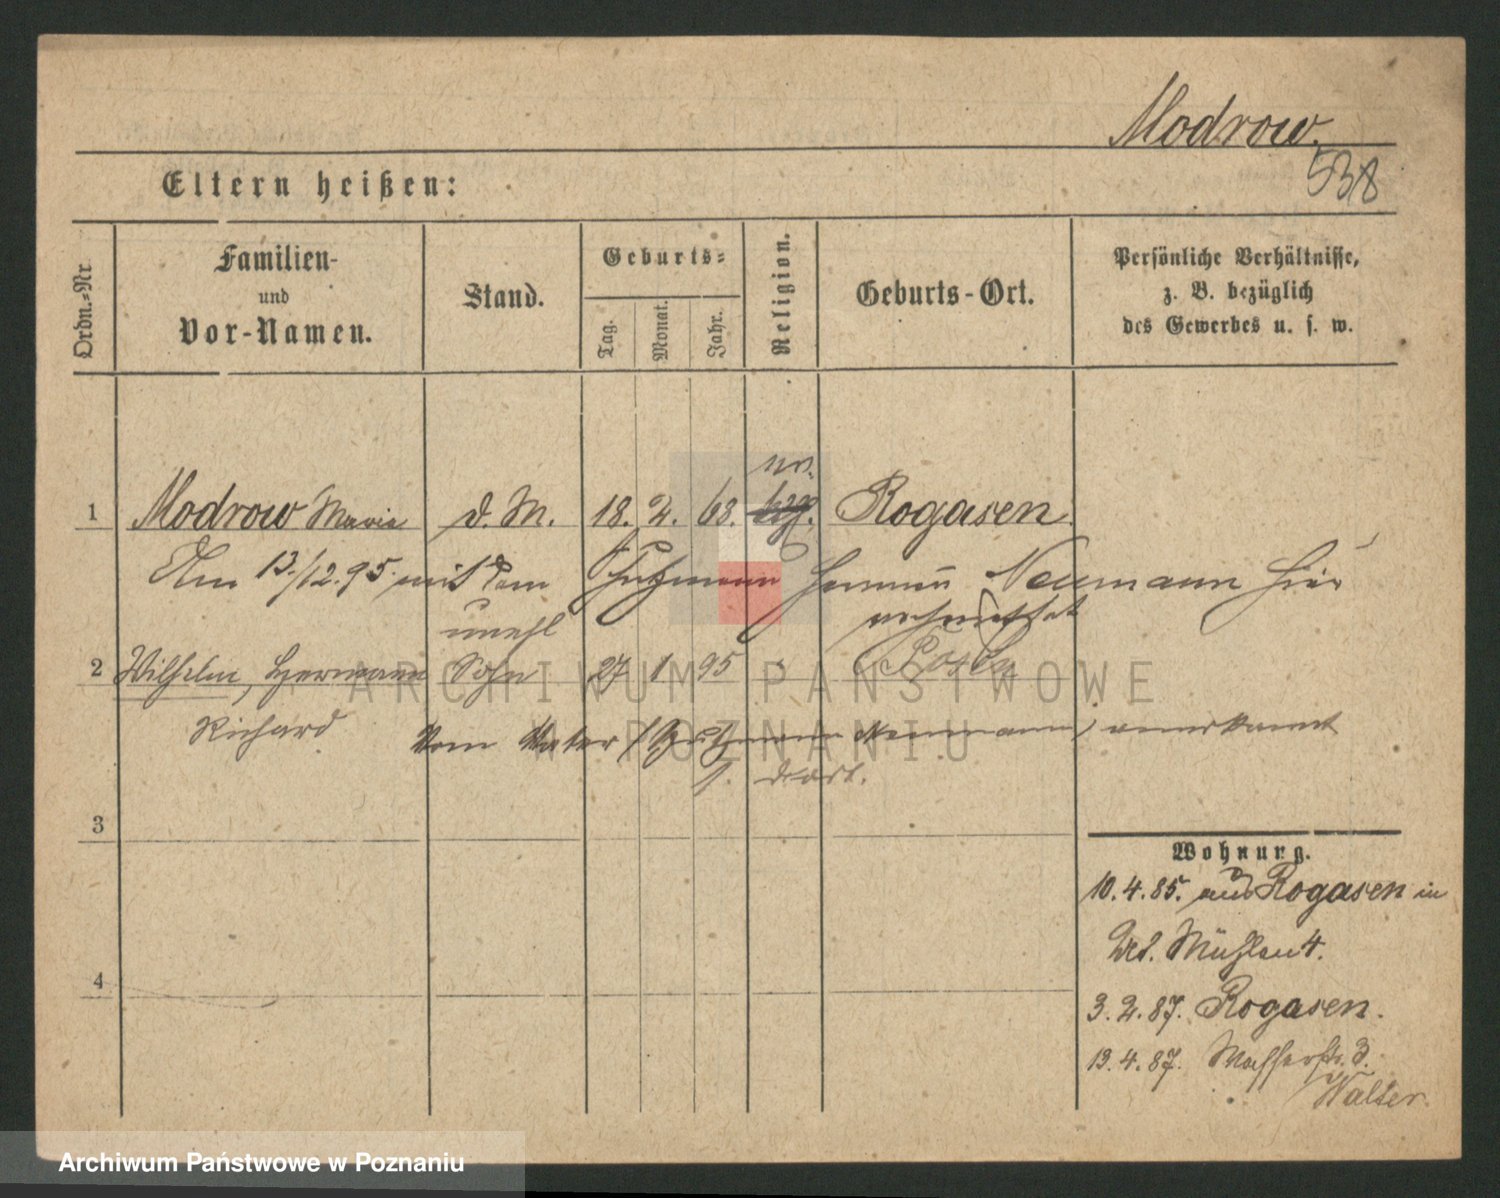 Modrow.
538
Eltern heißen:
Ordn.=Nr
Familien-
und
Vor-Namen.
Stand.
Geburts=
Tag.
Monat.
Jahr.
Religion.
Geburts-Ort.
Persönliche Verhältnisse,
z. B. bezüglich
des Gewerbes u. s. w.
ev.
1 Modrow Marie d. M. 18. 2. 68. Rogasen
Am 13./12.95. mit dem Schutzmann Hermann Neumann hier
verheirathet
unehl
2 Wilhelm, Hermann Sohn 27 1 95 Posen
Richard Vom Vater (Schutzmann Neumann) anerkannt
s. dort.
3
4
Wohnung.
10.4.85. aus Rogasen in
Mühlen 4.
3.2.87. Rogasen.
13.4.87. Wasserstr. 3.
Walter
ARCHIWUM PAŃSTWOWE
W POZNANIU
Archiwum Państwowe w Poznaniu